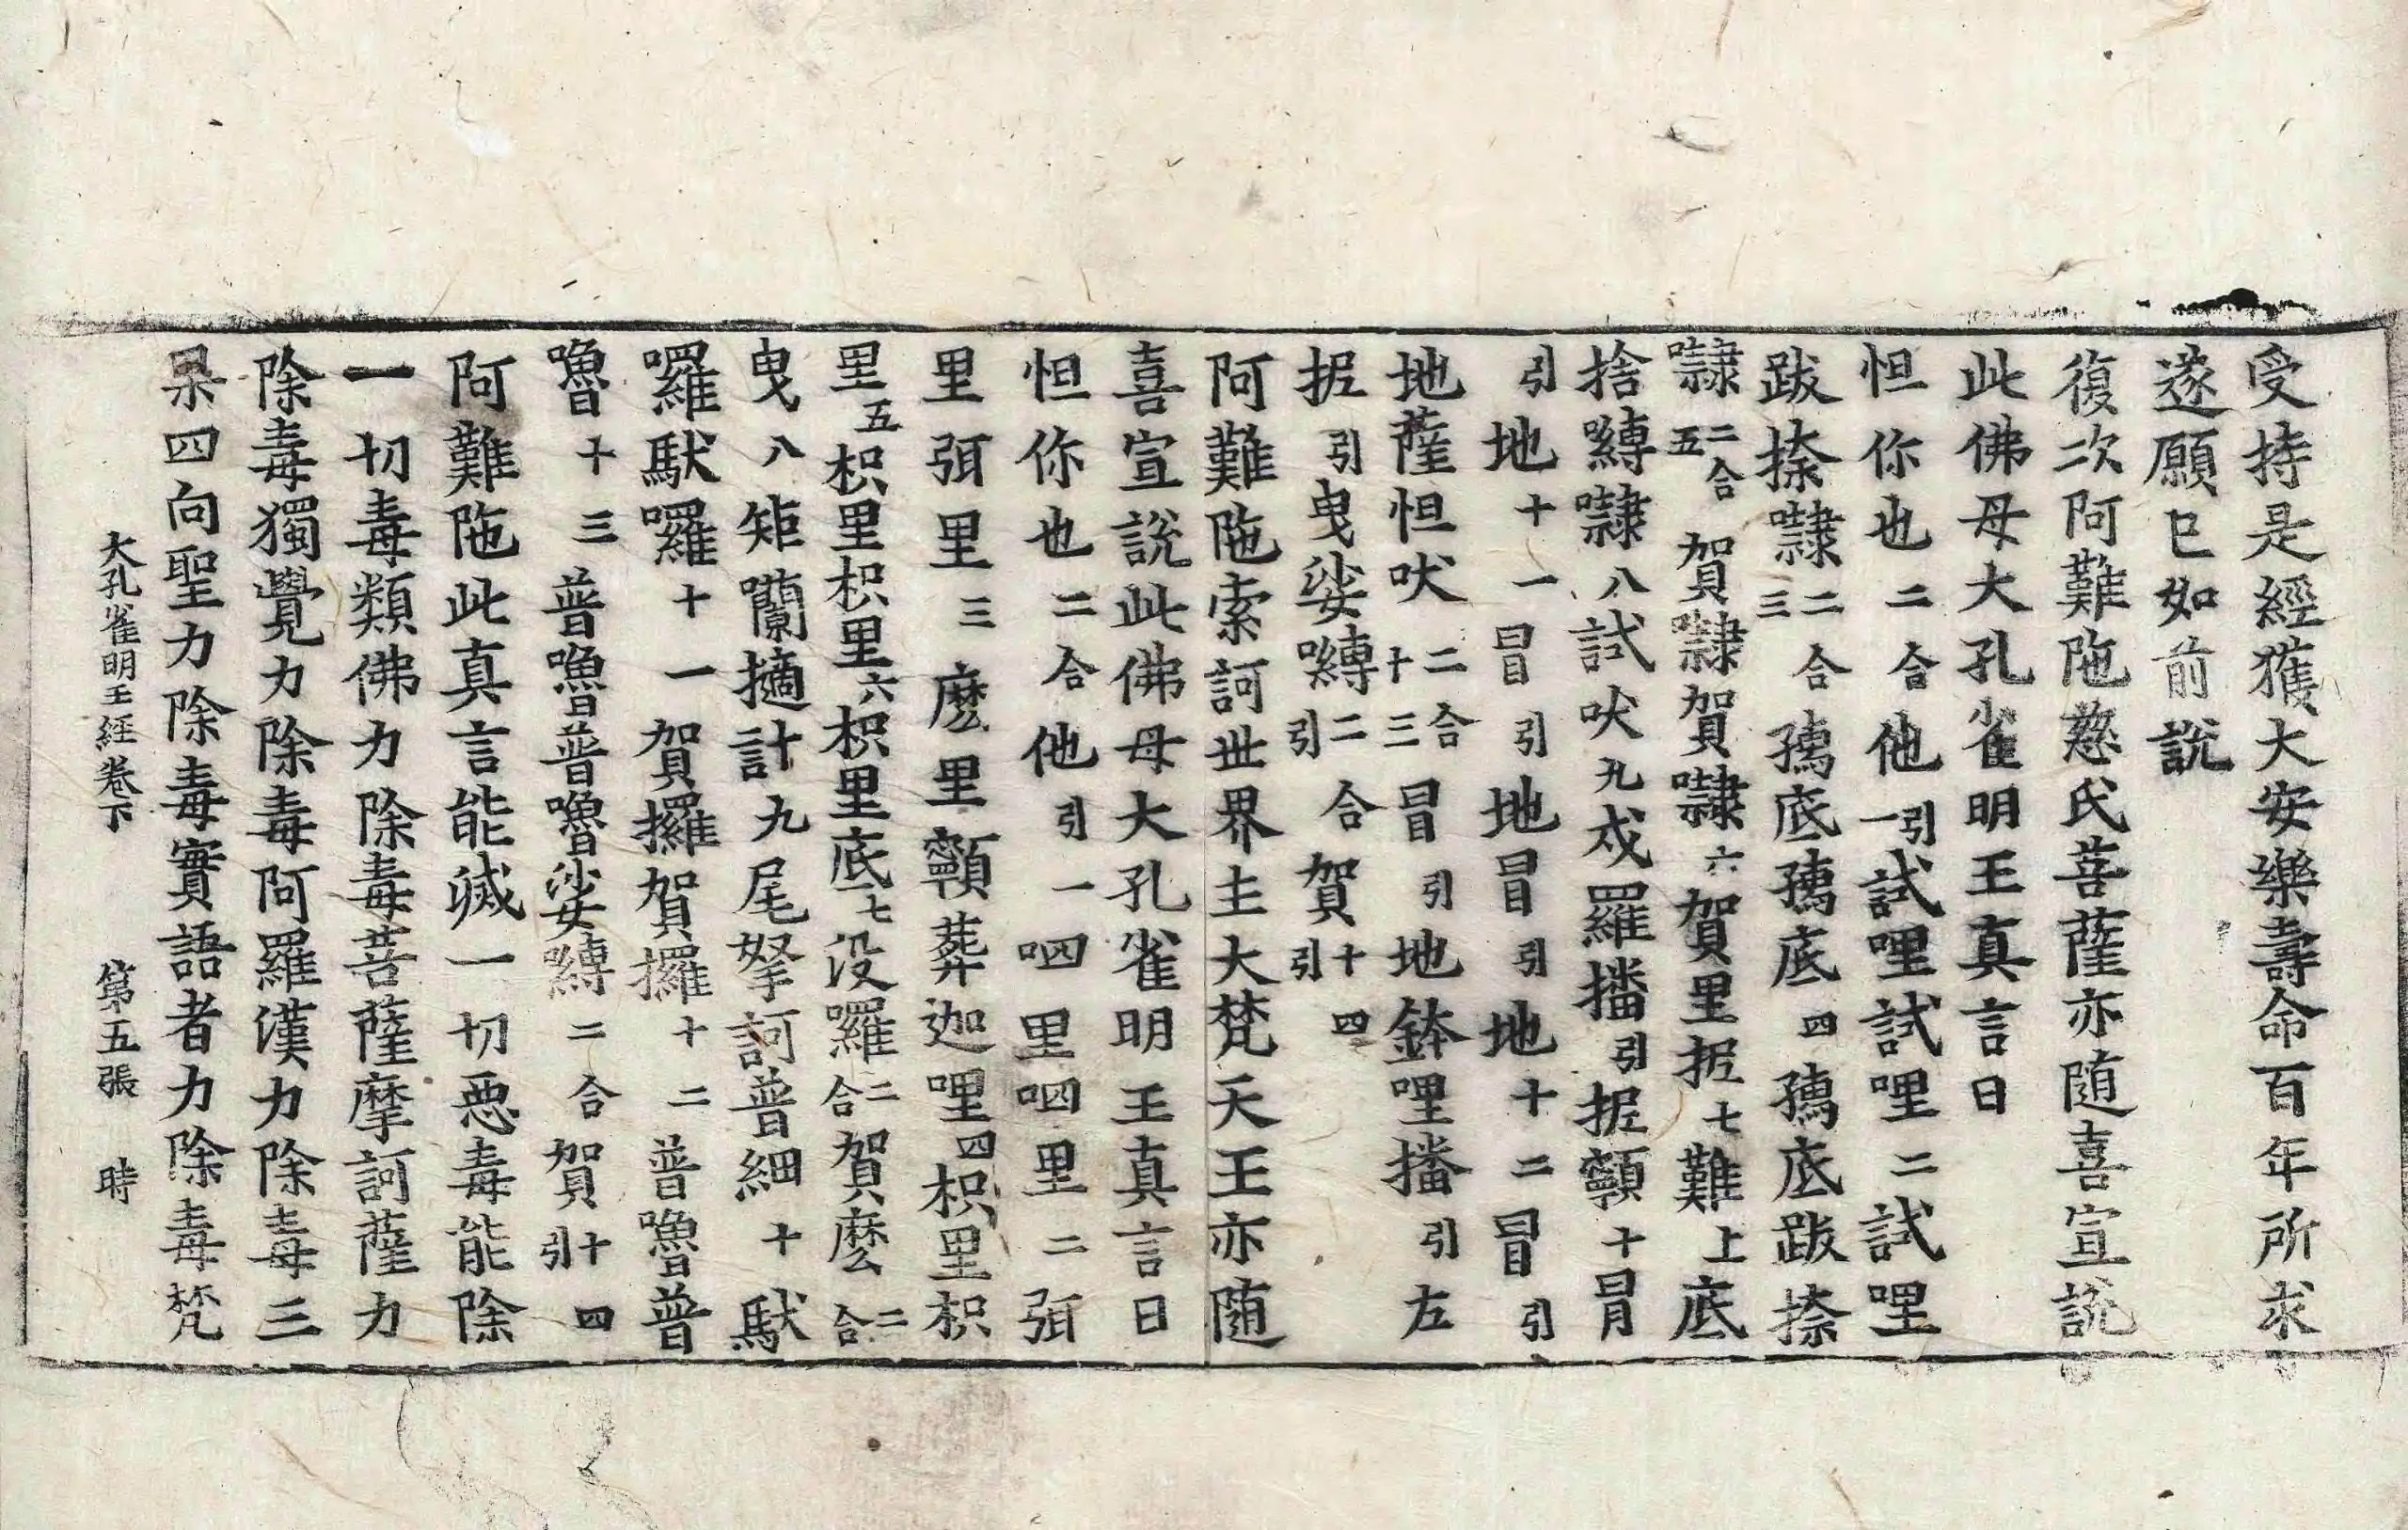 受持是經獲大安樂壽命百年所求
遂願已如前說
復次阿難陁慈氏菩薩亦隨喜宣說
此佛母大孔雀明王真言曰
怛你也二合他引一試哩試哩二試哩
跋捺㘑二合三孺底孺底四孺底跋捺
㘑二合五賀㘑賀㘑六賀里抳七難上底
捨嚩㘑八試吠九戍羅播引抳顐十冒
引地十一冒引地冒引地十二冒引
地薩怛吠二合十三冒引地鉢哩播引左
抳引曳娑嚩二合引賀引十四
阿難陁索訶世界主大梵天王亦隨
喜宣說此佛母大孔雀明王真言曰
怛你也二合他引一呬里呬里二弭
里弭里三麽里顐葬迦哩四枳里枳
里五枳里枳里六枳里底七没囉二合賀麽二合
曳八矩𡃤擿計九尾拏訶普細十馱
囉馱囉十一賀攞賀攞十二普嚕普
嚕十三普嚕普嚕娑嚩二合賀引十四
阿難陁此真言能滅一切惡毒能除
一切毒類佛力除毒菩薩摩訶薩力
除毒獨覺力除毒阿羅漢力除毒三
果四向聖力除毒實語者力除毒梵
大孔雀明王經卷下 第五張 時